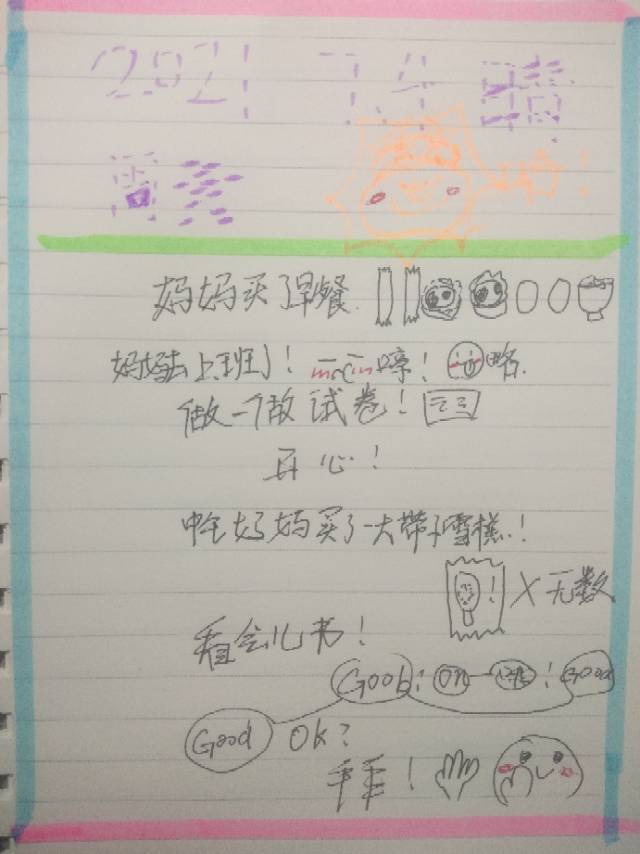 2021 7.4 晴
妈妈买了早餐
妈妈去上班了！哼！略.
做一做试卷！
开心！
中午妈妈买了一大带子雪糕.！
！X无数
看会儿书！
Goob！ON！Good
Good OK？
手手！